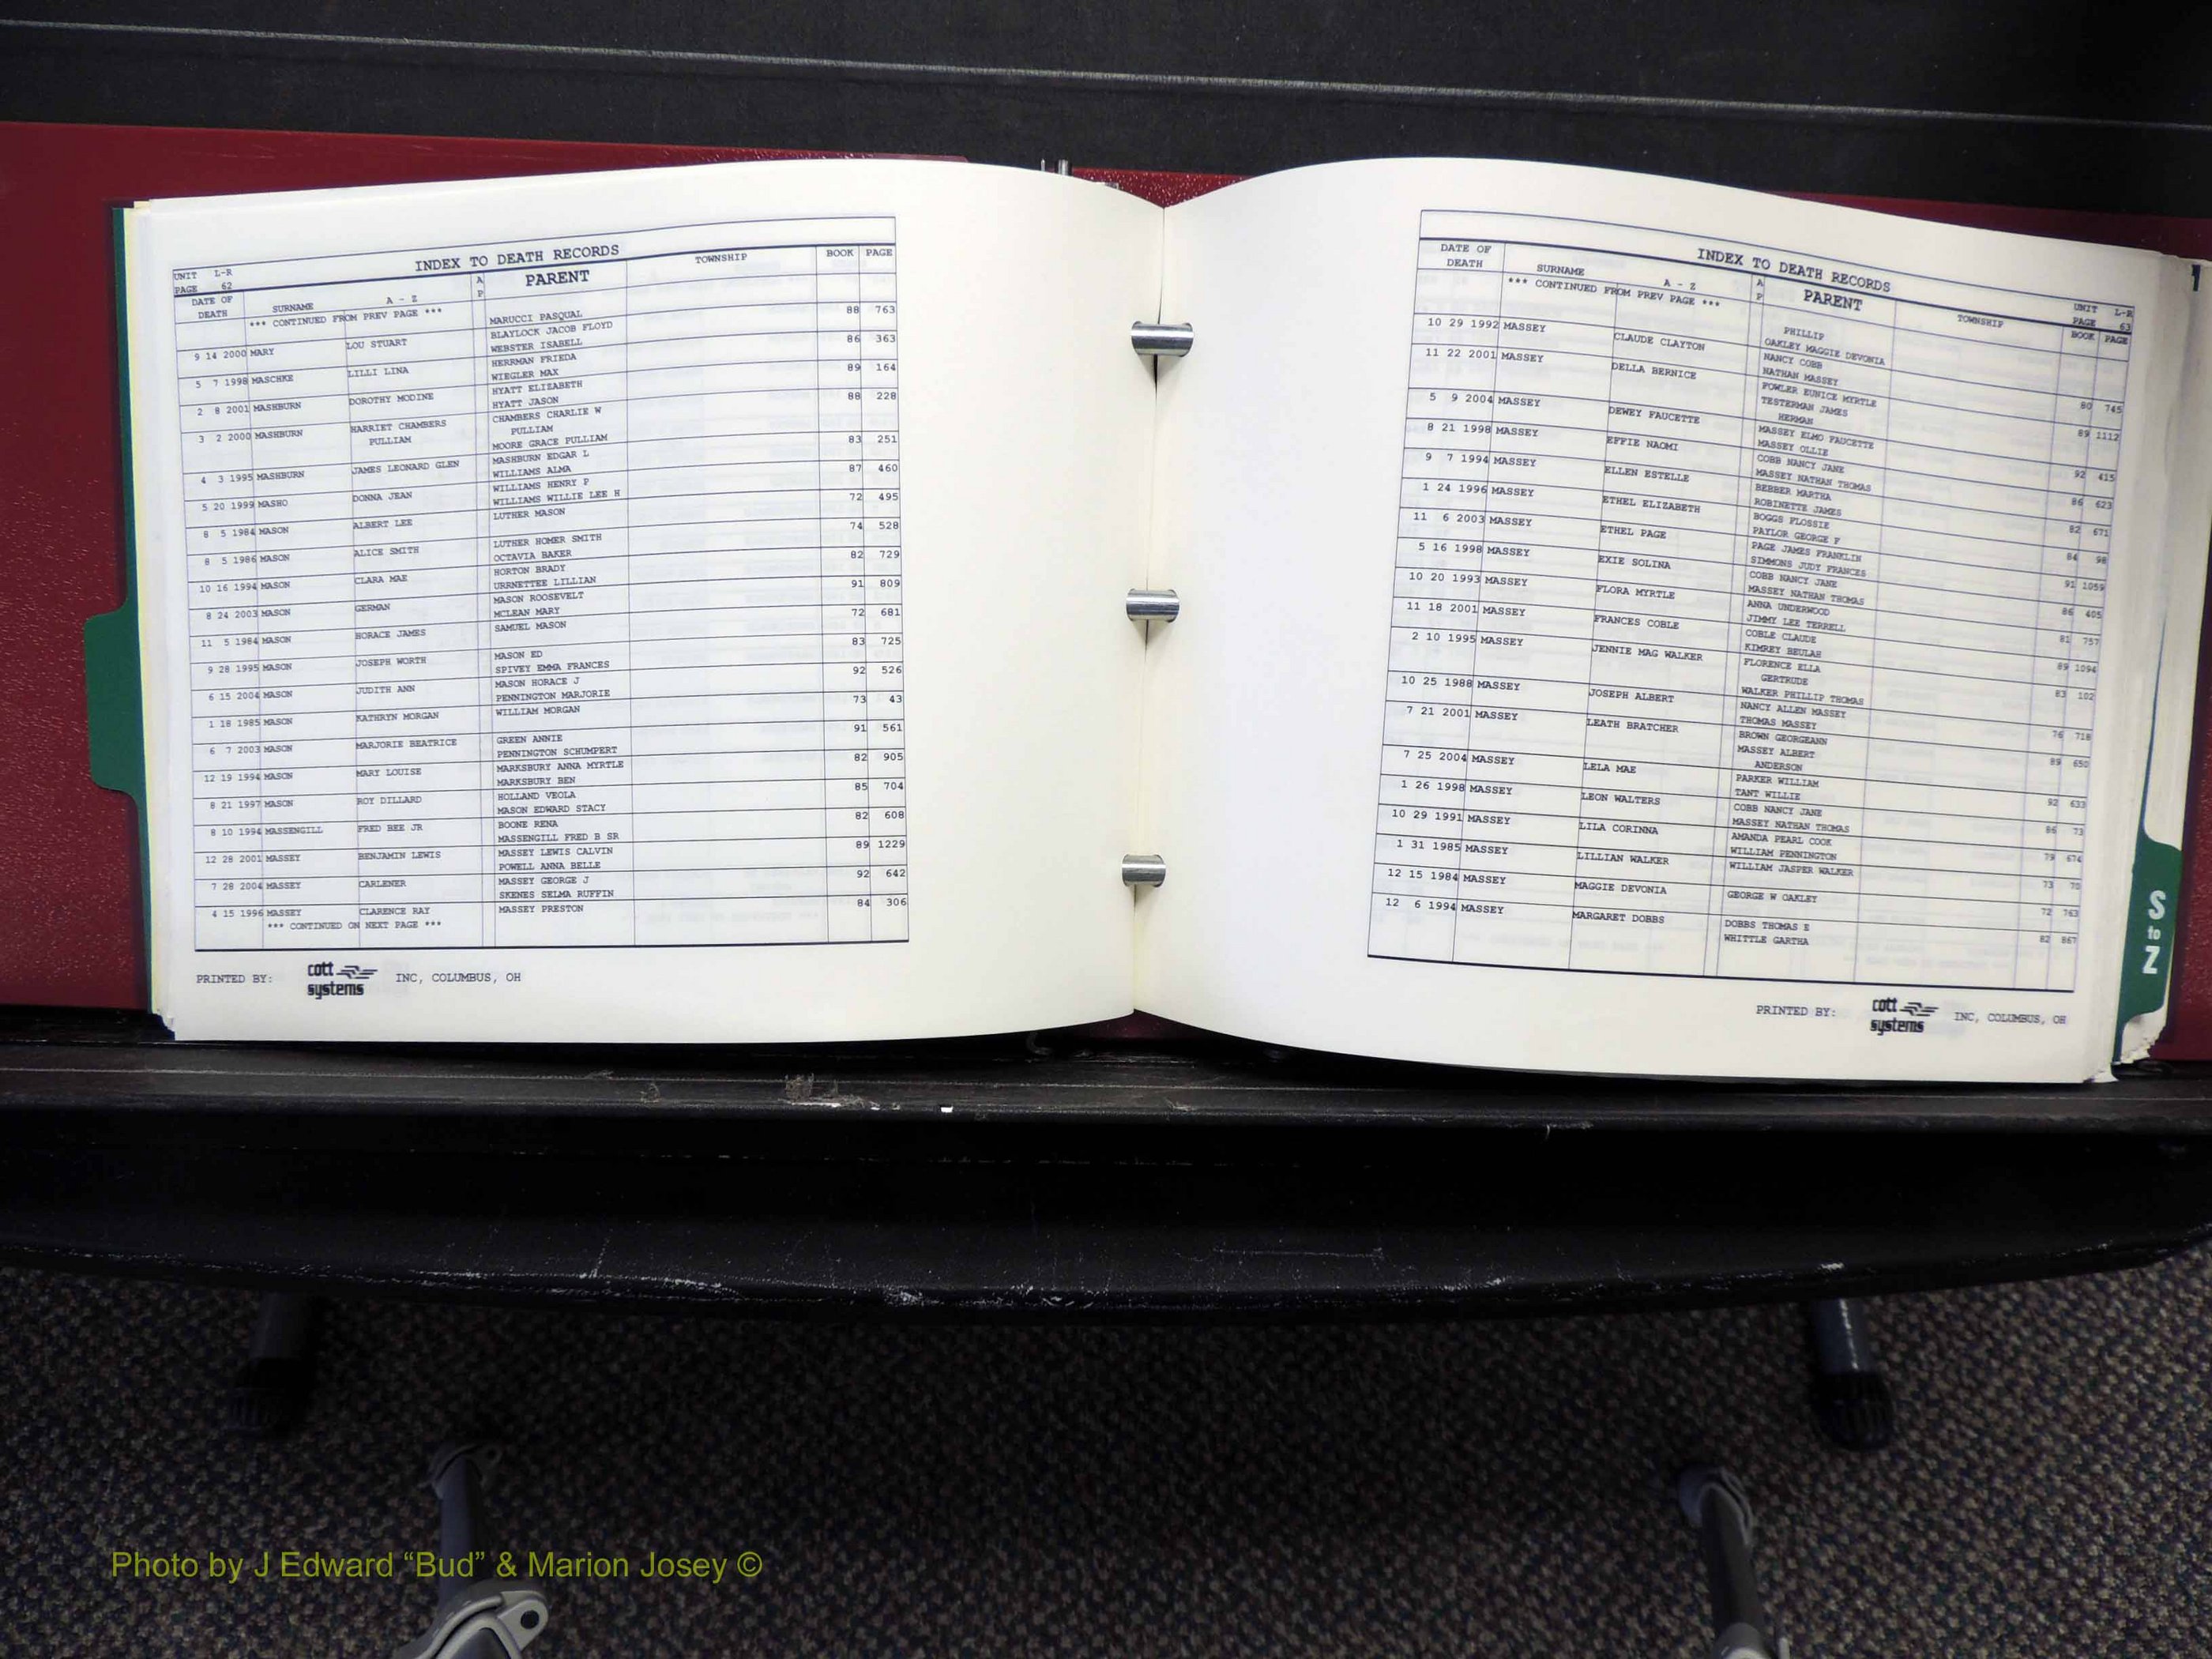 INDEX TO DEATH RECORDS
UNIT L-R
PAGE 62
DATE OF DEATH SURNAME A - Z A P PARENT TOWNSHIP BOOK PAGE
*** CONTINUED FROM PREV PAGE *** MARUCCI PASQUAL
9 14 2000 MARY LOU STUART BLAYLOCK JACOB FLOYD 88 763
WEBSTER ISABELL
5 7 1998 MASCHKE LILLI LINA HERRMAN FRIEDA 86 363
WIEGLER MAX
2 8 2001 MASHBURN DOROTHY MODINE HYATT ELIZABETH 89 164
HYATT JASON
3 2 2000 MASHBURN HARRIET CHAMBERS CHAMBERS CHARLIE W 88 228
PULLIAM PULLIAM
MOORE GRACE PULLIAM
4 3 1995 MASHBURN JAMES LEONARD GLEN MASHBURN EDGAR L 83 251
WILLIAMS ALMA
5 20 1999 MASHO DONNA JEAN WILLIAMS HENRY P 87 460
WILLIAMS WILLIE LEE H
8 5 1984 MASON ALBERT LEE LUTHER MASON 72 495
8 5 1986 MASON ALICE SMITH LUTHER HOMER SMITH 74 528
OCTAVIA BAKER
10 16 1994 MASON CLARA MAE HORTON BRADY 82 729
URRNETTEE LILLIAN
8 24 2003 MASON GERMAN MASON ROOSEVELT 91 809
MCLEAN MARY
11 5 1984 MASON HORACE JAMES SAMUEL MASON 72 681
9 28 1995 MASON JOSEPH WORTH MASON ED 83 725
SPIVEY EMMA FRANCES
6 15 2004 MASON JUDITH ANN MASON HORACE J 92 526
PENNINGTON MARJORIE
1 18 1985 MASON KATHRYN MORGAN WILLIAM MORGAN 73 43
6 7 2003 MASON MARJORIE BEATRICE GREEN ANNIE 91 561
PENNINGTON SCHUMPERT
12 19 1994 MASON MARY LOUISE MARKSBURY ANNA MYRTLE 82 905
MARKSBURY BEN
8 21 1997 MASON ROY DILLARD HOLLAND VEOLA 85 704
MASON EDWARD STACY
8 10 1994 MASSENGILL FRED BEE JR BOONE RENA 82 608
MASSENGILL FRED B SR
12 28 2001 MASSEY BENJAMIN LEWIS MASSEY LEWIS CALVIN 89 1229
POWELL ANNA BELLE
7 28 2004 MASSEY CARLENER MASSEY GEORGE J 92 642
SKENES SELMA RUFFIN
4 15 1996 MASSEY CLARENCE RAY MASSEY PRESTON 84 306
*** CONTINUED ON NEXT PAGE ***
PRINTED BY: cott systems INC, COLUMBUS, OH
INDEX TO DEATH RECORDS
UNIT L-R
PAGE 63
DATE OF DEATH SURNAME A - Z A P PARENT TOWNSHIP BOOK PAGE
*** CONTINUED FROM PREV PAGE *** PHILLIP
OAKLEY MAGGIE DEVONIA
10 29 1992 MASSEY CLAUDE CLAYTON NANCY COBB 80 745
NATHAN MASSEY
11 22 2001 MASSEY DELLA BERNICE FOWLER EUNICE MYRTLE 89 1112
TESTERMAN JAMES
HERMAN
5 9 2004 MASSEY DEWEY FAUCETTE MASSEY ELMO FAUCETTE 92 415
MASSEY OLLIE
8 21 1998 MASSEY EFFIE NAOMI COBB NANCY JANE 86 623
MASSEY NATHAN THOMAS
9 7 1994 MASSEY ELLEN ESTELLE BEBBER MARTHA 82 671
ROBINETTE JAMES
1 24 1996 MASSEY ETHEL ELIZABETH BOGGS FLOSSIE 84 98
PAYLOR GEORGE F
11 6 2003 MASSEY ETHEL PAGE PAGE JAMES FRANKLIN 91 1059
SIMMONS JUDY FRANCES
5 16 1998 MASSEY EXIE SOLINA COBB NANCY JANE 86 405
MASSEY NATHAN THOMAS
10 20 1993 MASSEY FLORA MYRTLE ANNA UNDERWOOD 81 757
JIMMY LEE TERRELL
11 18 2001 MASSEY FRANCES COBLE COBLE CLAUDE 89 1094
KIMREY BEULAH
2 10 1995 MASSEY JENNIE MAG WALKER FLORENCE ELLA 83 102
GERTRUDE
WALKER PHILLIP THOMAS
10 25 1988 MASSEY JOSEPH ALBERT NANCY ALLEN MASSEY 76 718
THOMAS MASSEY
7 21 2001 MASSEY LEATH BRATCHER BROWN GEORGEANN 89 650
MASSEY ALBERT
ANDERSON
7 25 2004 MASSEY LELA MAE PARKER WILLIAM 92 633
TANT WILLIE
1 26 1998 MASSEY LEON WALTERS COBB NANCY JANE 86 73
MASSEY NATHAN THOMAS
10 29 1991 MASSEY LILA CORINNA AMANDA PEARL COOK 79 674
WILLIAM PENNINGTON
1 31 1985 MASSEY LILLIAN WALKER WILLIAM JASPER WALKER 73 70
12 15 1984 MASSEY MAGGIE DEVONIA GEORGE W OAKLEY 72 763
12 6 1994 MASSEY MARGARET DOBBS DOBBS THOMAS E 82 867
WHITTLE GARTHA
PRINTED BY: cott systems INC, COLUMBUS, OH
S to Z
Photo by J Edward “Bud” & Marion Josey ©